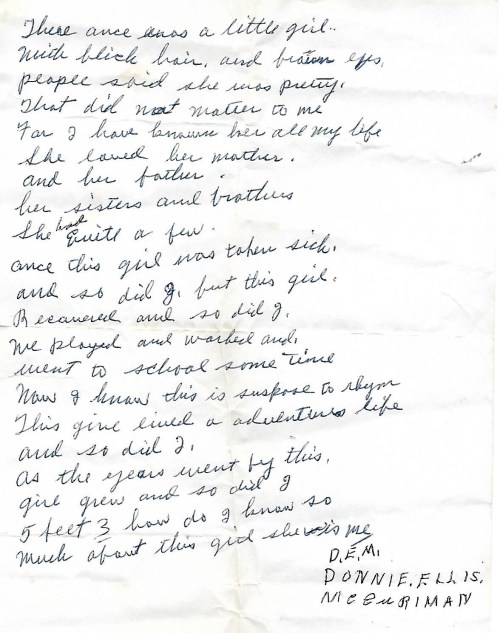 There once was a little girl..
With blick hair, and brown eys,
people said she was pretty.
That did not matter to me
For I have known her all my life
She loved her mother.
and her father.
her sisters and brothers
She had Quite a few.
once this girl was taken sick,
and so did I, but this girl.
Recovered and so did I,
we played and worked and,
went to school some time
Now I know this is suspose to rhym
This girl lived a adventures life
and so did I,
as the years went by this,
girl grew and so did I
5 feet 3 how do I know so
much about this girl she is me
D.E.M.
DONNIE. ELLIS.